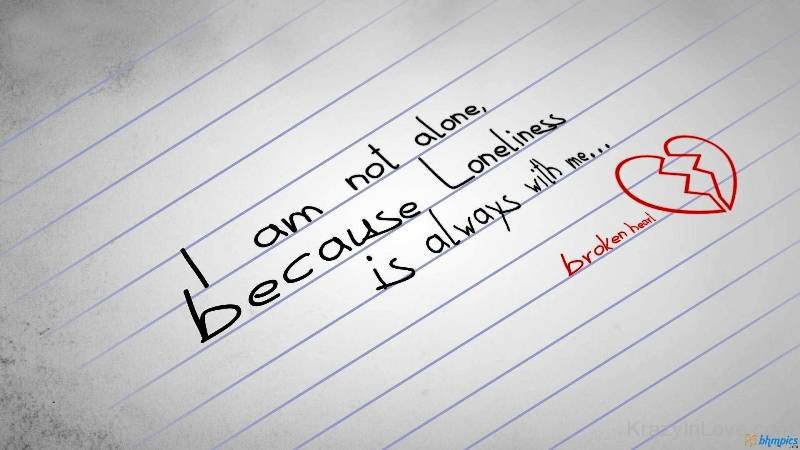 I am not alone,
because Loneliness
is always with me...
broken heart
KrazyInLove.com
bhmpics